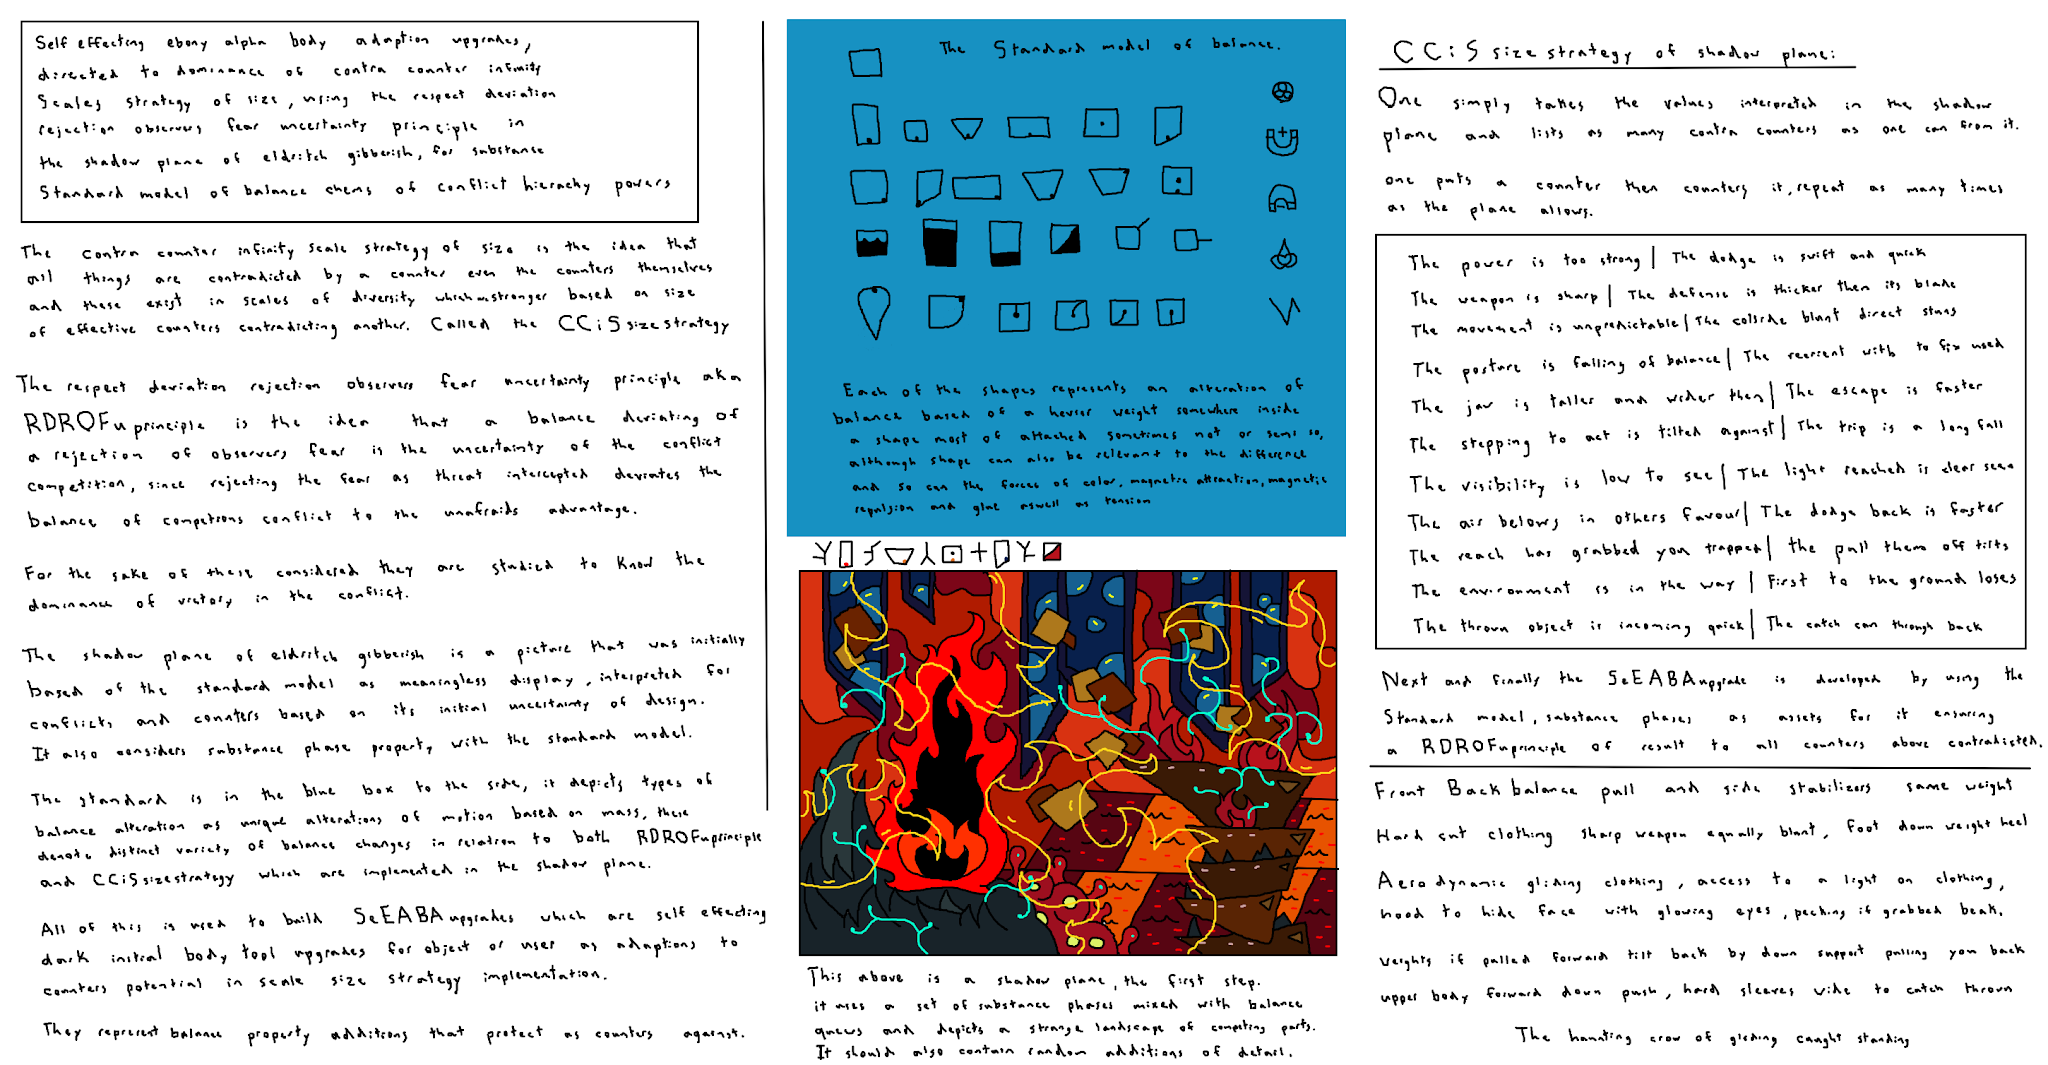 Self effecting ebony alpha body adaption upgrades,
directed to dominance of contra counter infinity
Scales strategy of size, using the respect deviation
rejection observers fear uncertainty principle in
the shadow plane of eldritch gibberish, for substance
Standard model of balance chems of conflict hierachy powers
The contra counter infinity scale strategy of size is the idea that
all things are contradicted by a counter even the counters themselves
and these exist in scales of diversity which stronger based on size
of effective counters contradicting another. Called the CCiSsizestrategy
The respect deviation rejection observers fear uncertainty principle aka
RDROFuprinciple is the idea that a balance deviating of
a rejection of observers fear is the uncertainty of the conflict
competition, since rejecting the fear as threat intercepted deviates the
balance of competions conflict to the unafraids advantage.
For the sake of these considered they are studied to know the
dominance of victory in the conflict.
The shadow plane of eldritch gibberish is a picture that was initially
based of the standard model as meaningless display, interpreted for
conflicts and counters based on its initial uncertainty of design.
It also considers substance phase property with the standard model.
The standard is in the blue box to the side, it depicts types of
balance alteration as unique alterations of motion based on mass, these
denote distinct variety of balance changes in relation to both RDROFuprinciple
and CCiSsizestrategy which are implemented in the shadow plane.
All of this is used to build SeEABAupgrades which are self effecting
dark initial body tool upgrades for object or user as adaptions to
counters potential in scale size strategy implementation.
They represent balance property additions that protect as counters against.
The Standard model of balance.
Each of the shapes represents an alteration of
balance based of a hevier weight somewhere inside
a shape most of attached sometimes not or semi so,
although shape can also be relevant to the difference
and so can the forces of color, magnetic attraction, magnetic
repulsion and glue aswell as tension
This above is a shadow plane, the first step.
it uses a set of substance phases mixed with balance
and depicts a strange landscape of competing parts.
It should also contain random additions of detail.
CCiSsizestrategy of shadow plane:
One simply takes the values interpreted in the shadow
plane and lists as many contra counters as one can from it.
one puts a counter then counters it, repeat as many times
as the plane allows.
The power is too strong | The dodge is swift and quick
The weapon is sharp | The defense is thicker then its blade
The movement is unpredictable | The blunt direct stuns
The posture is falling of balance | The with to fix used
The jaw is taller and wider then | The escape is faster
The stepping to act is tilted against | The trip is a long fall
The visibility is low to see | The light reached is clear seen
The air belows in others favour | The dodge back is faster
The reach has grabbed you trapped | the pull them off tilts
The environment is in the way | First to the ground loses
The thrown object is incoming quick | The catch can through back
Next and finally the SeEABAupgrade is developed by using the
Standard model, substance phases as assets for it ensuring
a RDROFuprinciple of result to all counters above contradicted.
Front Back balance pull and side stabilizers same weight
Hard cut clothing sharp weapon equally blunt, foot down weight heel
Aerodynamic gliding clothing, access to a light on clothing,
hood to hide face with glowing eyes, pecking if grabbed beak.
weights if pulled forward tilt back by down support pulling you back
upper body forward down push, hard sleeves wide to catch thrown
The haunting crow of gliding caught standing